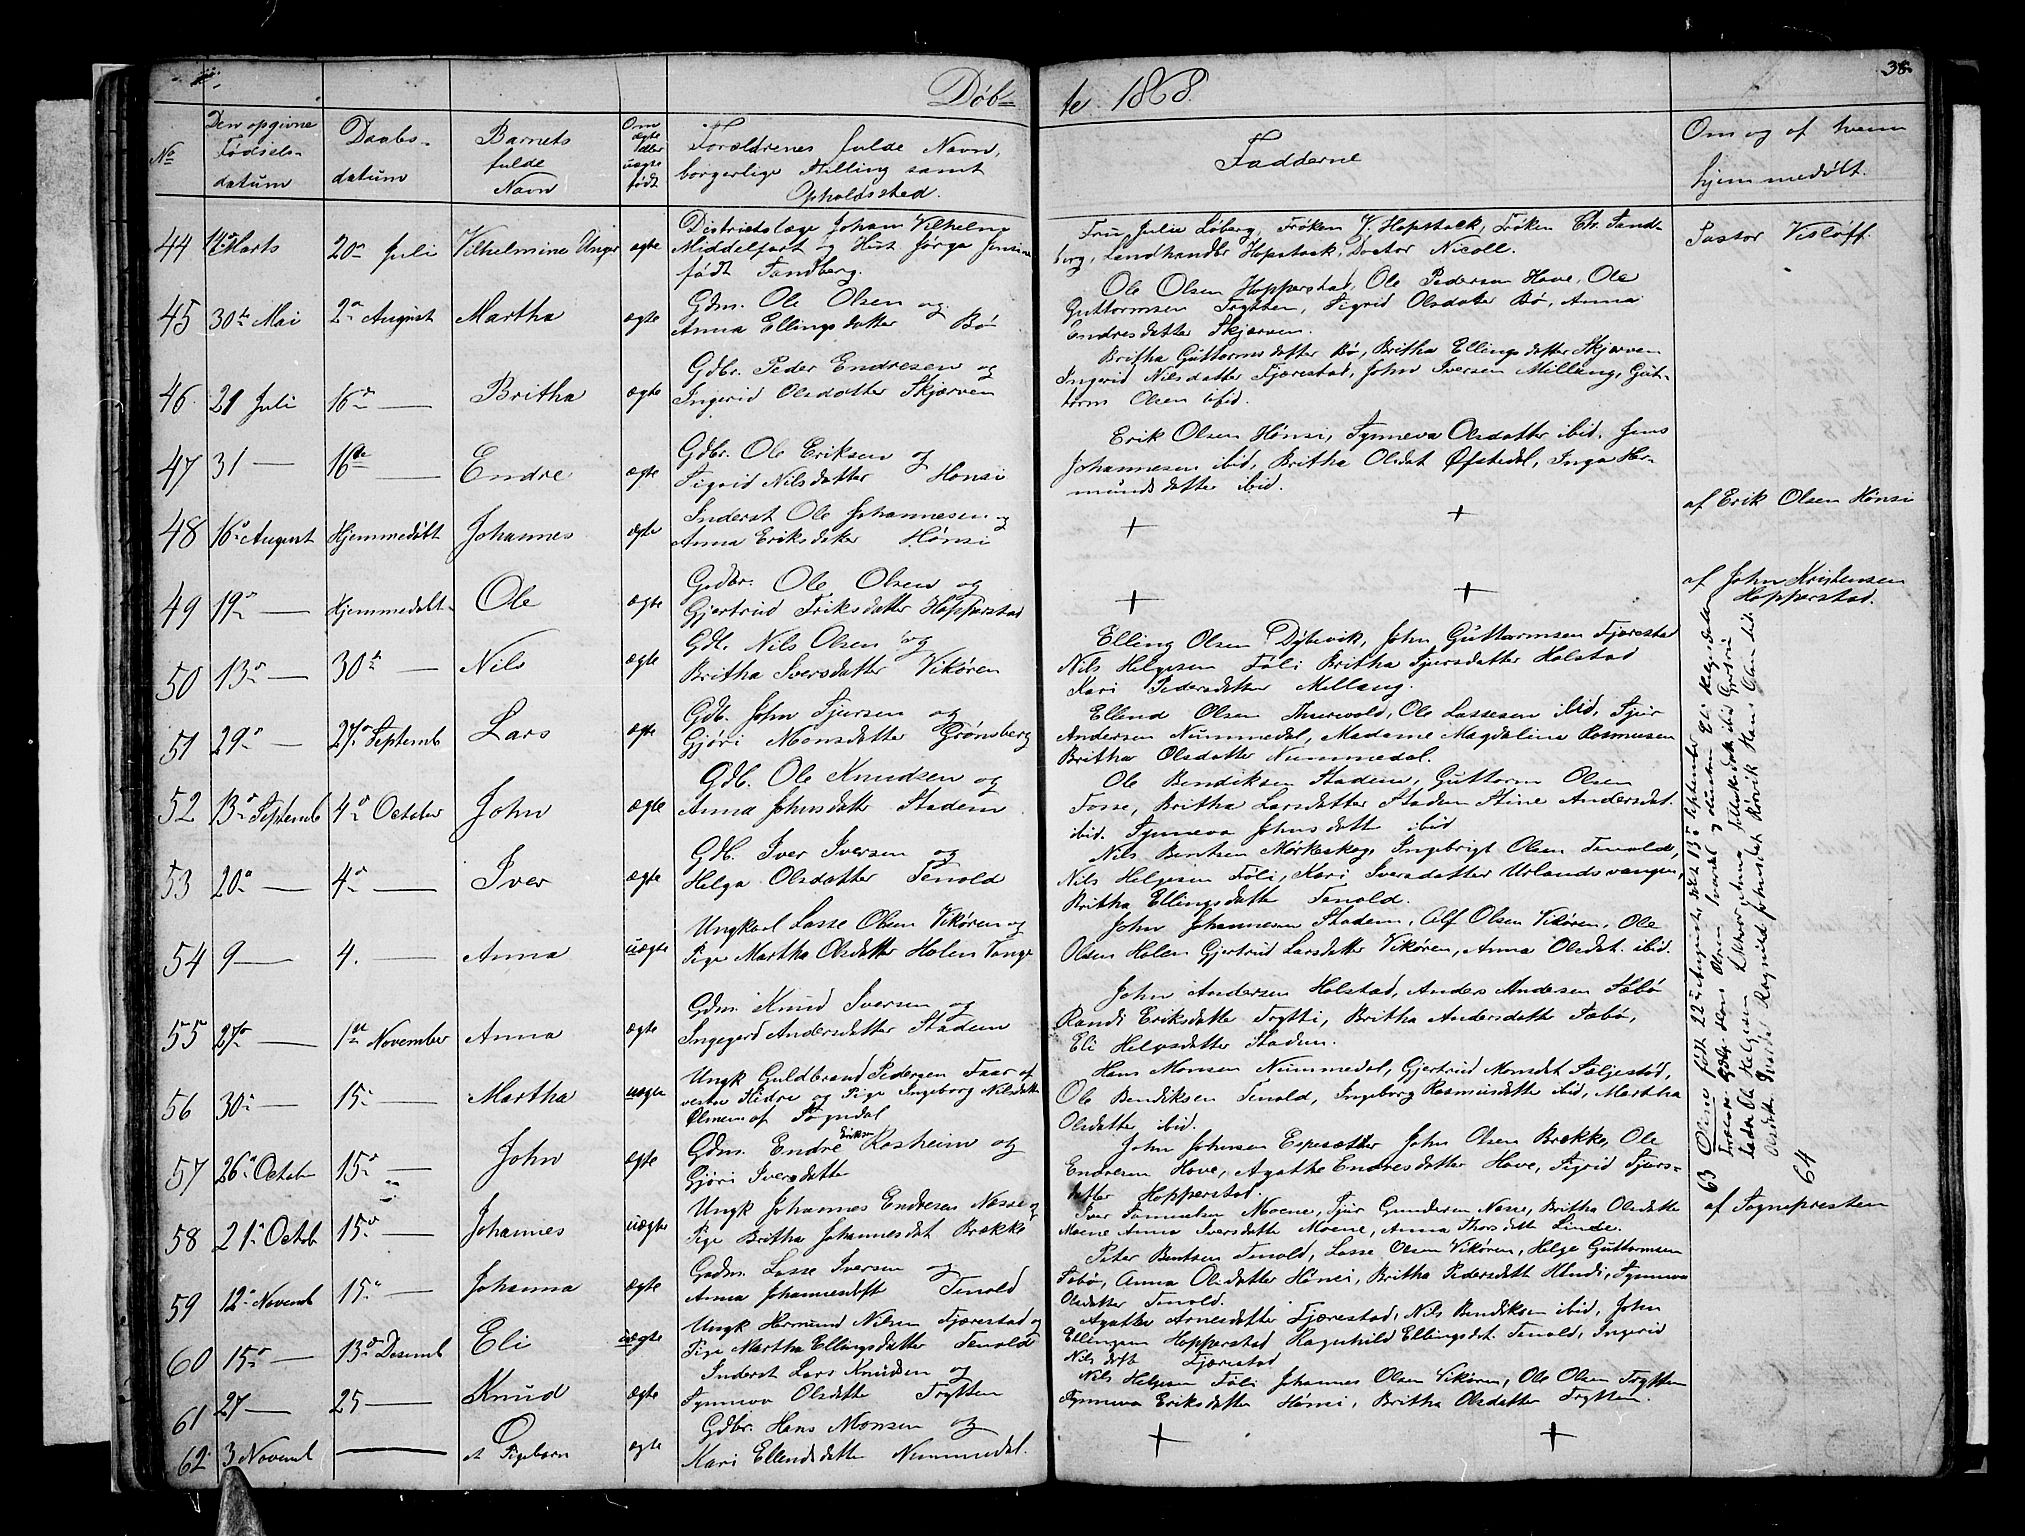 Døb=
te 1868.
38.
No
Den opgivne
Fødsels-
datum
Daabs-
datum
Barnets
fulde
Navn
Om
ægte
eller
uægte
født
Forældrenes fulde Navn,
borgerlige Stilling samt
Opholdssted.
Fadderne
Om og af hvem
hjemmedøbt.
44 Marts 20 Juli Vilhelmine Unger ægte
Districtslæge Johan Vilhelm
Middelfart og Hust. Jørga
født Sandberg.
Fru Julie Løberg, Frøken V. Hopstock, Frøken Ch. Sand-
berg, Landhandler Hopstock, Doctor Nicoll.
Pastor Visløff.
45 30te Mai 2 August Martha ægte
Gdm. Ole Olsen og
Anna Ellingsdatter Bø
Ole Olsen Hopperstad, Ole Pedersen Hove, Ole
Guttormsen Trytten, Sigrid Olsdater Bø, Anna
Endresdatter Skjærven.
46. 21 Juli 16 — Britha ægte
Gdbr. Peder Endresen og
Ingerid Olsdatter Skjærven
Britha Guttormsdatter Bø, Britha Ellingsdatter Skjærven
Ingerid Nilsdatter Fjærestad, John Iversen Millang, Gut-
torm Olsen ibid.
47 31 — 16de — Endre ægte
Gdbr. Ole Eriksen og
Sigrid Nilsdatter Hønsi
Erik Olsen Hønsi, Synneva Olsdatter ibid. Jens
Johannesen ibid, Britha Olsdat Øfstedal, Inga Her-
mundsdatter ibid.
48 16 August Hjemmedøbt Johannes ægte
Inderst Ole Johannesen og
Anna Eriksdatter Hønsi
+ +
af Erik Olsen Hønsi
49 19 — Hjemmedøbt Ole ægte
Gdbr. Ole Olsen og
Gjertrud Eriksdatter Hopperstad
+ +
af John Kristensen
Hopperstad.
50 13 — 30te — Nils ægte
Nils Olsen og
Britha Iversdatter Vikøren
Elling Olsen Dybevik, John Guttormsen Fjærestad
Nils Helgesen Føli Britha Sjursdatter Holstad
Kari Pedersdatter Millang.
51 29 — 27 Septemb Lars ægte
Gdb. John Sjursen og
Gjøri Monsdatter Grønsberg
Ellend Olsen Thurvold, Ole Lassesen ibid, Sjur
Andersen Nummedal, Madame Magdalina Rasmusen
Britha Olsdatter Nummedal.
52 13 Septemb 4 October John ægte
Gdb. Ole Knudsen og
Anna Johnsdatter Stadem
Ole Bendiksen Stadem, Guttorm Olsen
Fosse, Britha Larsdatter Stadem Stine Andersdat.
ibid. Synneva Johnsdatt ibid
53 20 — 4 — Iver ægte
Gdb. Iver Iversen og
Helga Olsdatter Tenold
Nils Bentsen Mørkeskog, Ingebrigt Olsen Tenold,
Nils Helgesen Føli, Kari Iversdatter Urlandsvangen,
Britha Ellingsdatt Tenold.
54 9 — 4. — Anna uægte
Ungkarl Lasse Olsen Vikøren og
Pige Martha Olsdatter Holen Vange
John Johannesen Stadem, Alf Olsen Vikøren, Ole
Olsen Holen Gjertrud Larsdatter Vikøren, Anna Olsdat. ibid.
55 27 — 1ste November Anna ægte
Gdm. Knud Iversen og
Ingegerd Andersdatter Stadem
John Andersen Holstad, Anders Andersen Sæbø
Randi Eriksdatte Trytti, Britha Andersdatte Sæbø,
Eli Helgesdatter Stadem.
56 30 — 15 — Martha uægte
Ungk Guldbrand Pedersen Faar af
vestre Slidre og Pige Ingeborg Nilsdatte
Ølmem af Sogndal
Hans Monsen Nummedal, Gjertrud Monsdat Seljestød,
Ole Bendiksen Tenold, Ingeborg Rasmusdatte ibid, Martha
Olsdatte ibid.
57 26 Octob 15 — John ægte
Gdm. Endre Eriksen Rosheim og
Gjøri Iversdatte
John Johnsen Espesætter John Olsen Brække, Ole
Endresen Hove, Agathe Endresdatter Hove, Sigrid Sjurs-
datter Hopperstad.
58 21 Octob 15 — Johannes uægte
Ungk Johannes Endresen Nesse og
Pige Britha Johannesdat Brække
Iver Samuelsen Moene, Sjur Gundersen Nesse, Britha Olsdatte
Moene Anna Iversdatte Moene, Anna Thorsdatt Linde.
af Sognepresten
59 12 Novemb 15 — Johanna ægte
Gadm. Lasse Iversen og
Anna Johannesdatt Tenold
Peter Bentsen Tenold, Lasse Olsen Vikøren, Helge Guttormsen
Sæbø, Anna Olsdatter Hønsi, Britha Pedersdatt Hlndi, Synneva
Olsdatter Tenold.
60 15 — 13 Desemb Eli uægte
Ungk Hermund Nilsen Fjærestad og
Pige Martha Ellingsdatter Tenold
Agathe Arnesdatter Fjærestad, Nils Bendiksen ibid, John
Ellingsen Hopperstad Ragnhild Ellingsdat. Tenold, Ingerid
Nilsdatt Fjærestad
61 27 — 25 — Knud ægte
Inderst Lars Knudsen og
Synneva Olsdatte Trytten
Nils Helgesen Føli Johannes Olsen Vikøren, Ole Olsen Trytten
Synneva Eriksdatter Hønsi, Britha Olsdatter Trytten.
62 3 Novemb — et Pigebarn ægte
Gdbr. Hans Monsen og
Kari Ellendsdatte Nummedal.
+ +
63 Olsine født 22 August døbt 13 September
Gdbr. Hans Olsen og Hustru Eli Helgesdatter
Ole Helgesen
Olsdatter Ragnild Johnsdatt Rørvik Hans Olsen ibid
64